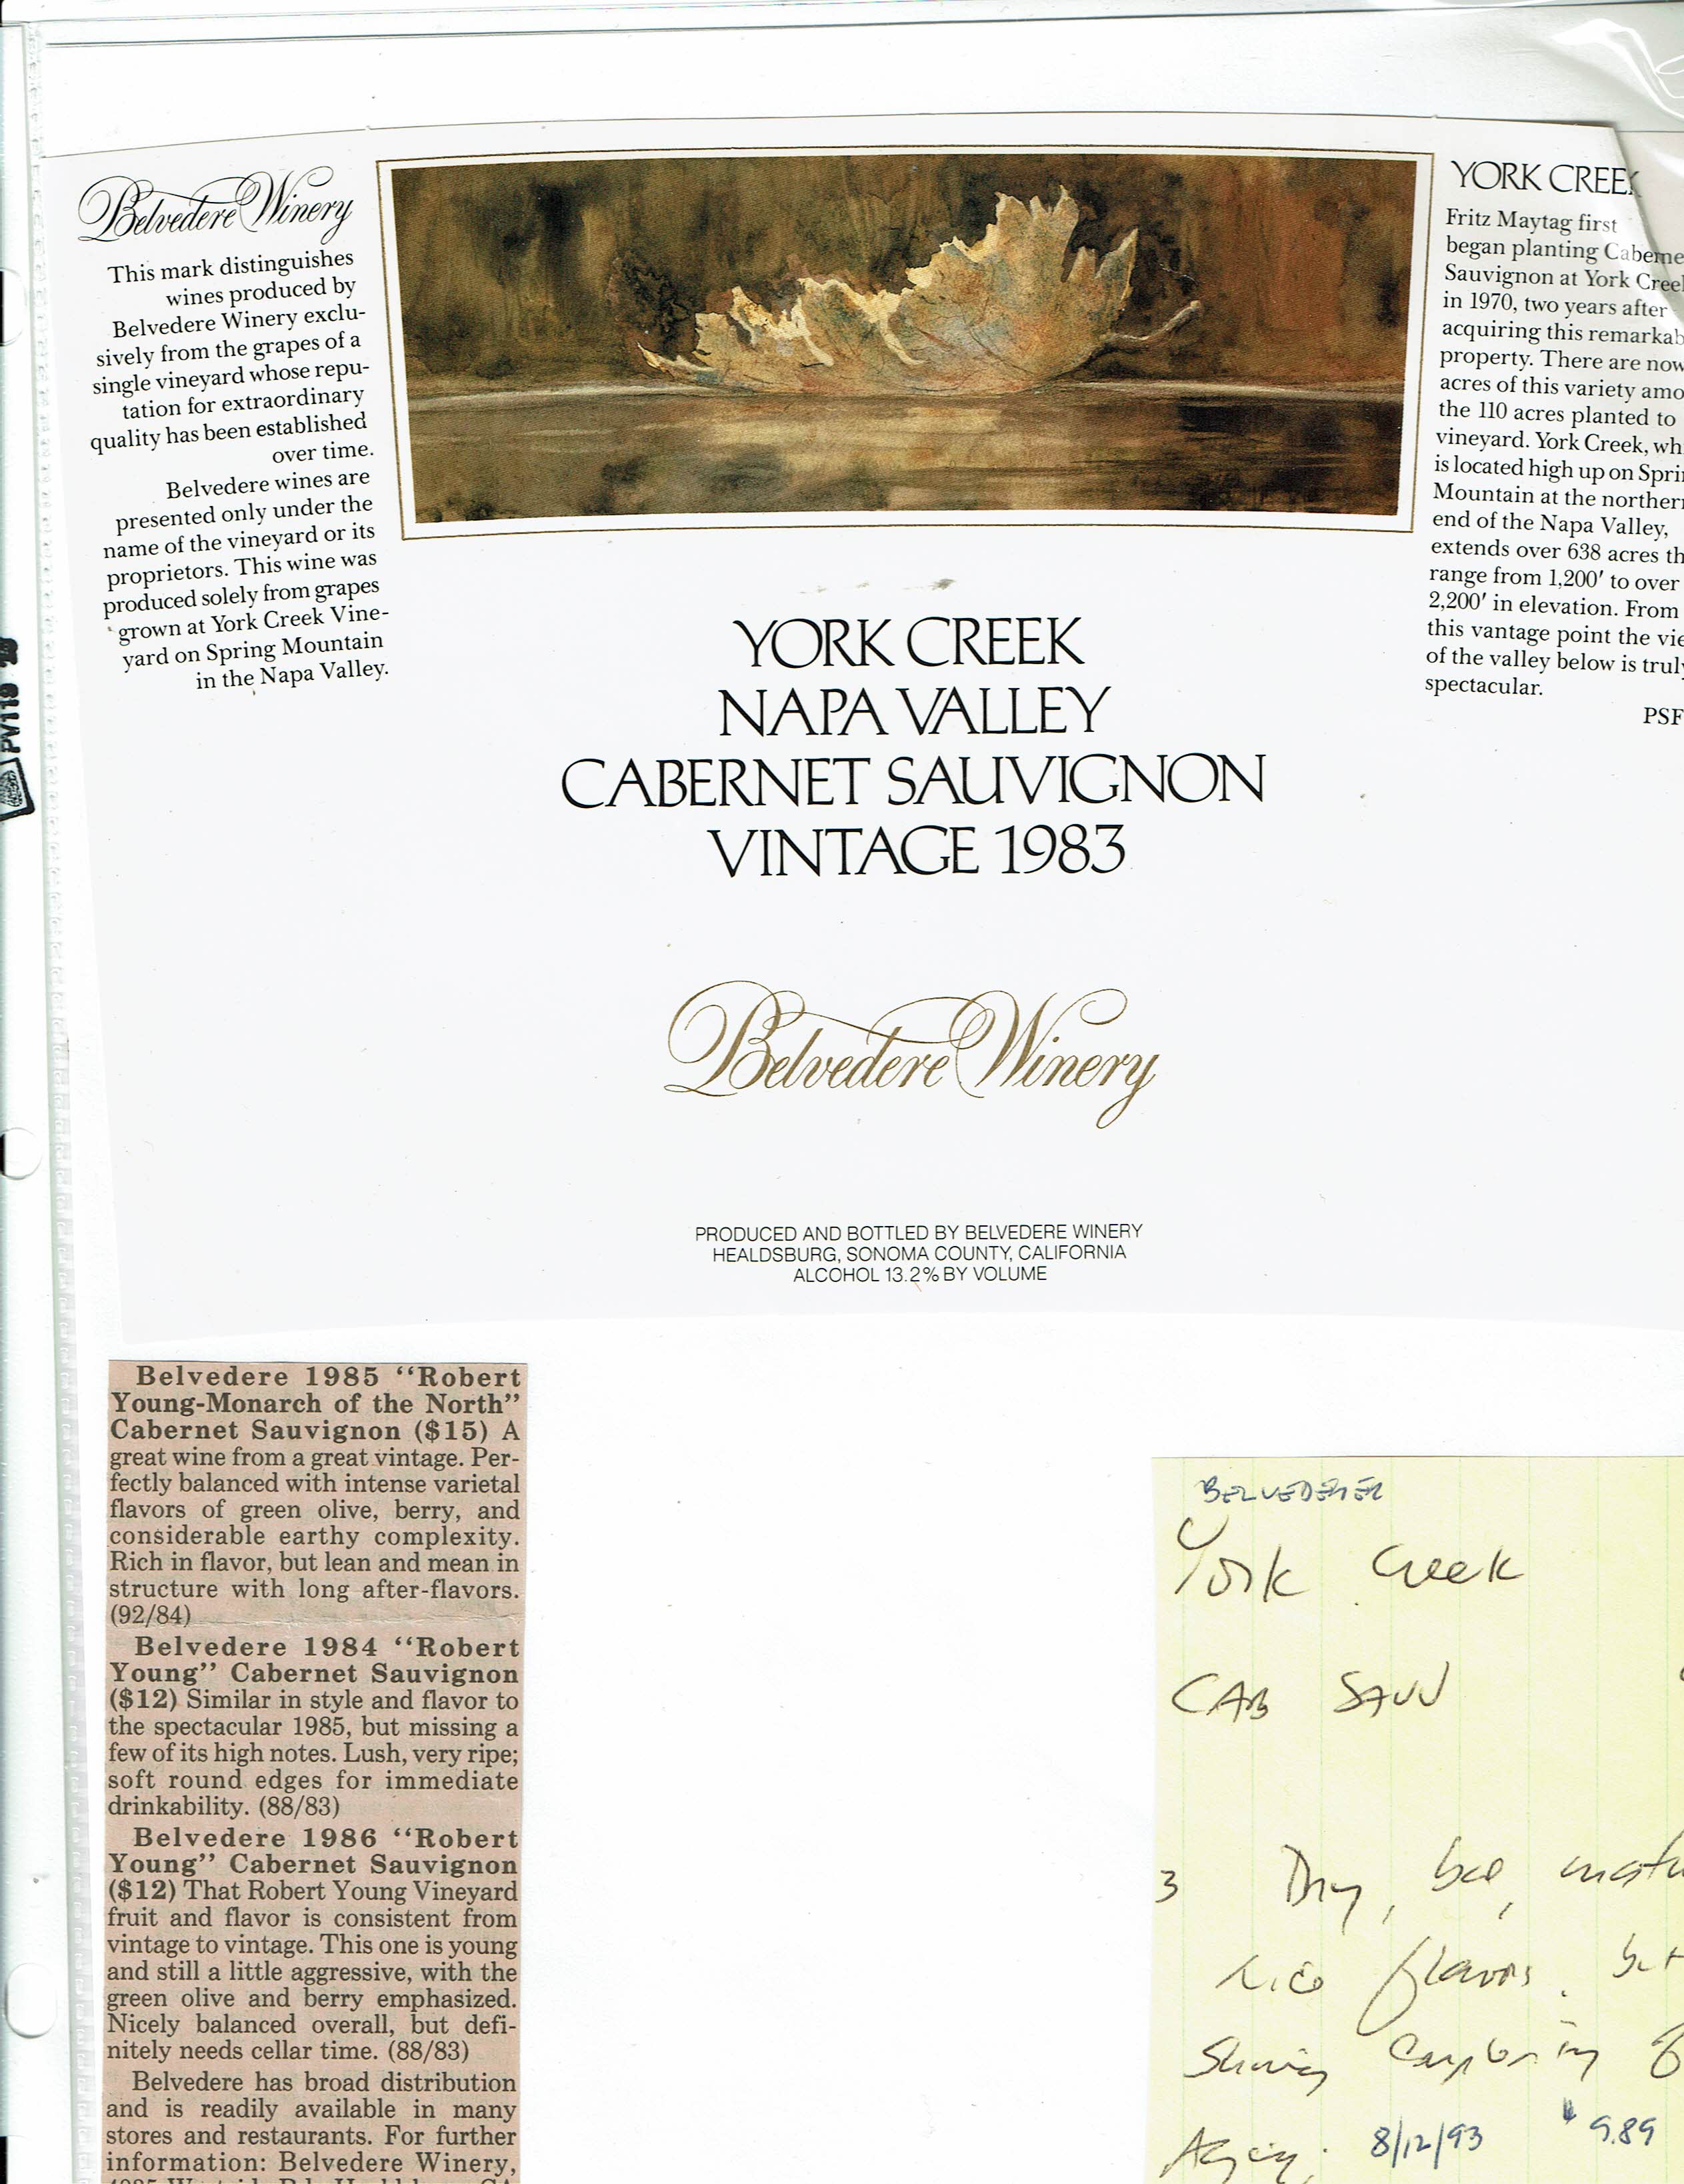 Belvedere Winery
This mark distinguishes
wines produced by
Belvedere Winery exclu-
sively from the grapes of a
single vineyard whose repu-
tation for extraordinary
quality has been established
over time.
Belvedere wines are
presented only under the
name of the vineyard or its
proprietors. This wine was
produced solely from grapes
grown at York Creek Vine-
yard on Spring Mountain
in the Napa Valley.
YORK CREEK
Fritz Maytag first
began planting Caberne
Sauvignon at York Cree
in 1970, two years after
acquiring this remarkab
property. There are now
acres of this variety amo
the 110 acres planted to
vineyard. York Creek, wh
is located high up on Sprin
Mountain at the northern
end of the Napa Valley,
extends over 638 acres th
range from 1,200′ to over
2,200′ in elevation. From
this vantage point the vie
of the valley below is truly
spectacular.
PSF
YORK CREEK
NAPA VALLEY
CABERNET SAUVIGNON
VINTAGE 1983
Belvedere Winery
PRODUCED AND BOTTLED BY BELVEDERE WINERY
HEALDSBURG, SONOMA COUNTY, CALIFORNIA
ALCOHOL 13.2% BY VOLUME
PV119
Belvedere 1985 “Robert
Young-Monarch of the North”
Cabernet Sauvignon ($15) A
great wine from a great vintage. Per-
fectly balanced with intense varietal
flavors of green olive, berry, and
considerable earthy complexity.
Rich in flavor, but lean and mean in
structure with long after-flavors.
(92/84)
Belvedere 1984 “Robert
Young” Cabernet Sauvignon
($12) Similar in style and flavor to
the spectacular 1985, but missing a
few of its high notes. Lush, very ripe;
soft round edges for immediate
drinkability. (88/83)
Belvedere 1986 “Robert
Young” Cabernet Sauvignon
($12) That Robert Young Vineyard
fruit and flavor is consistent from
vintage to vintage. This one is young
and still a little aggressive, with the
green olive and berry emphasized.
Nicely balanced overall, but defi-
nitely needs cellar time. (88/83)
Belvedere has broad distribution
and is readily available in many
stores and restaurants. For further
information: Belvedere Winery,
York Creek
CAB SAUV
3 Dry,
nice flavors.
Aging. 8/12/93 $9.89